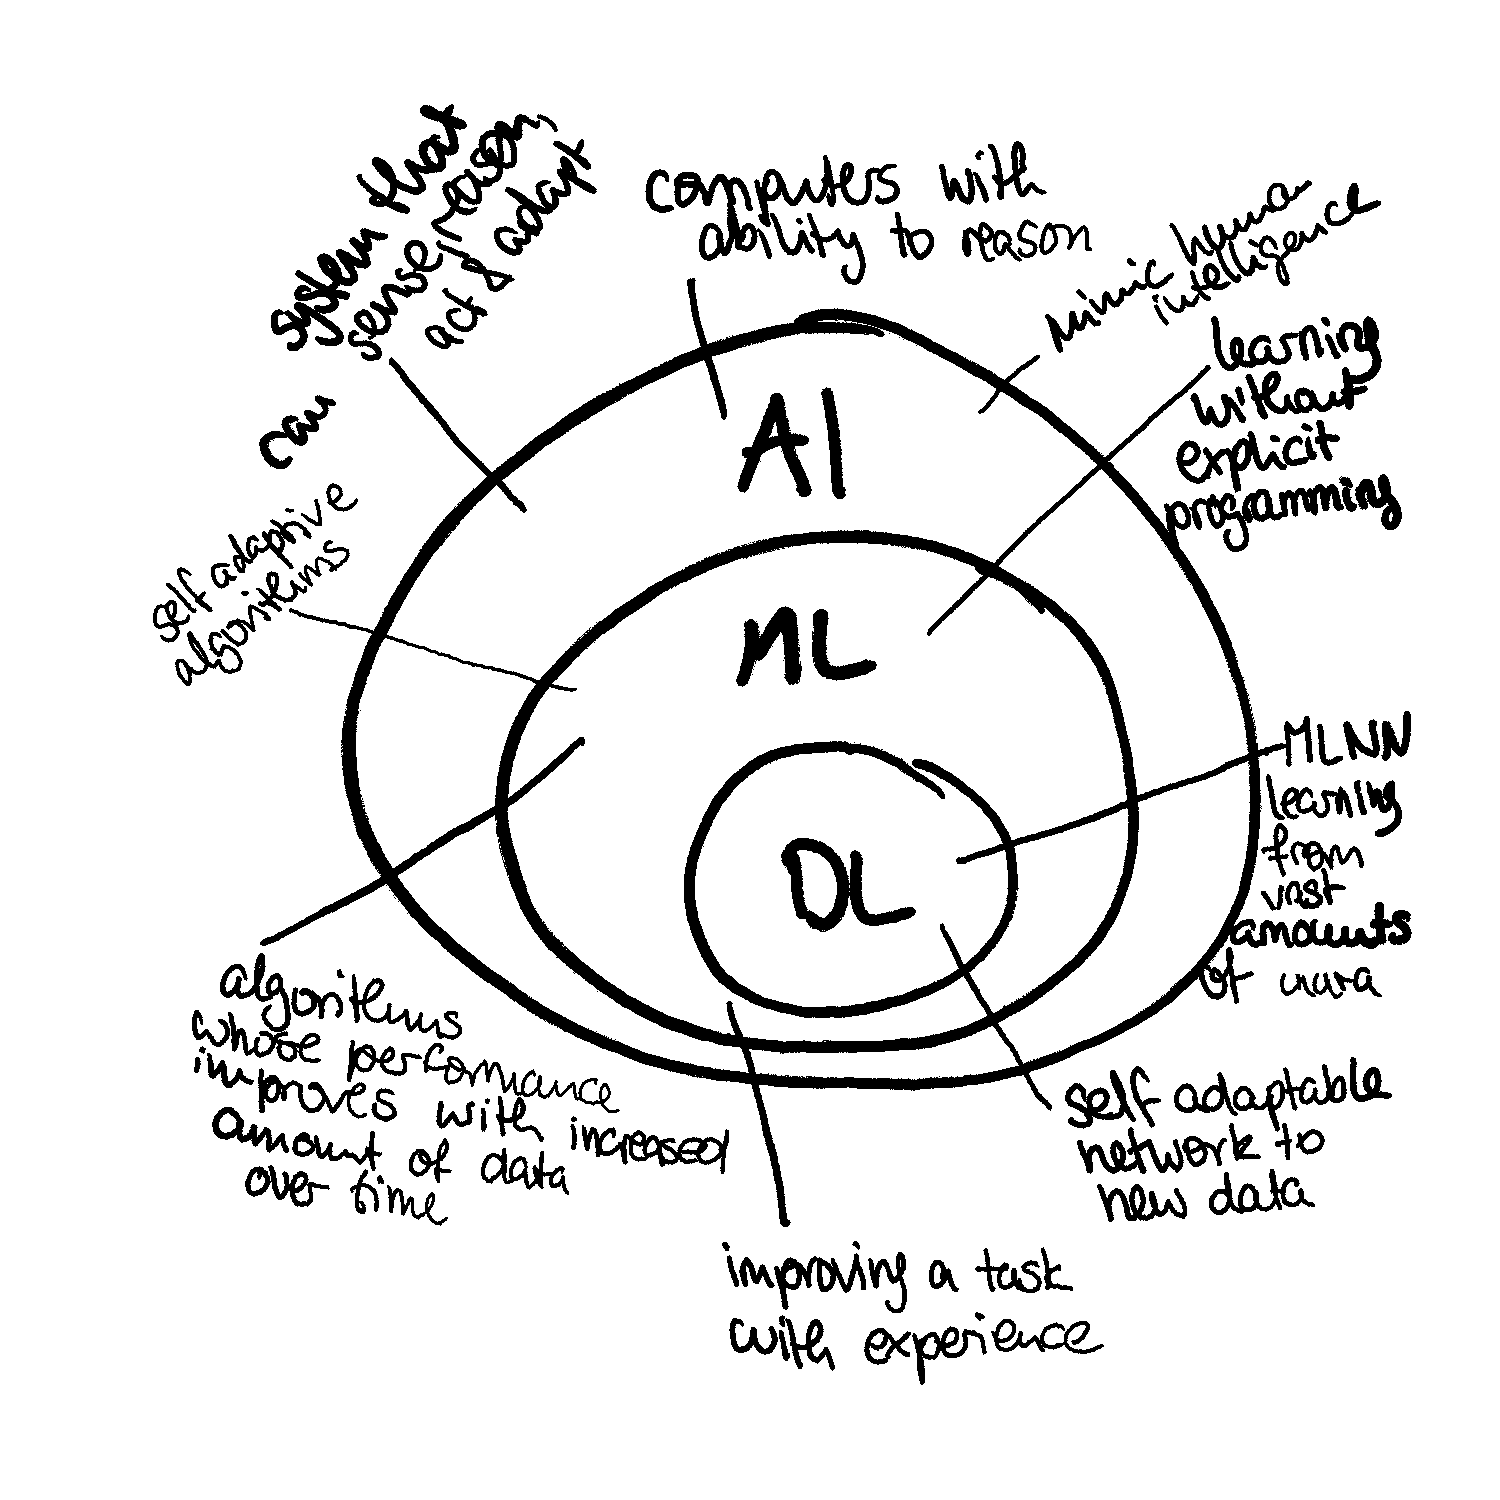 system that
can sense, reason,
act & adapt
computers with
ability to reason
mimic human
intelligence
learning
without
explicit
programming
self adaptive
algorithms
AI
ML
DL
MLNN
learning
from
vast
amounts
of
algorithms
whose performance
improves with increased
amount of data
over time
self adaptable
network to
new data
improving a task
with experience